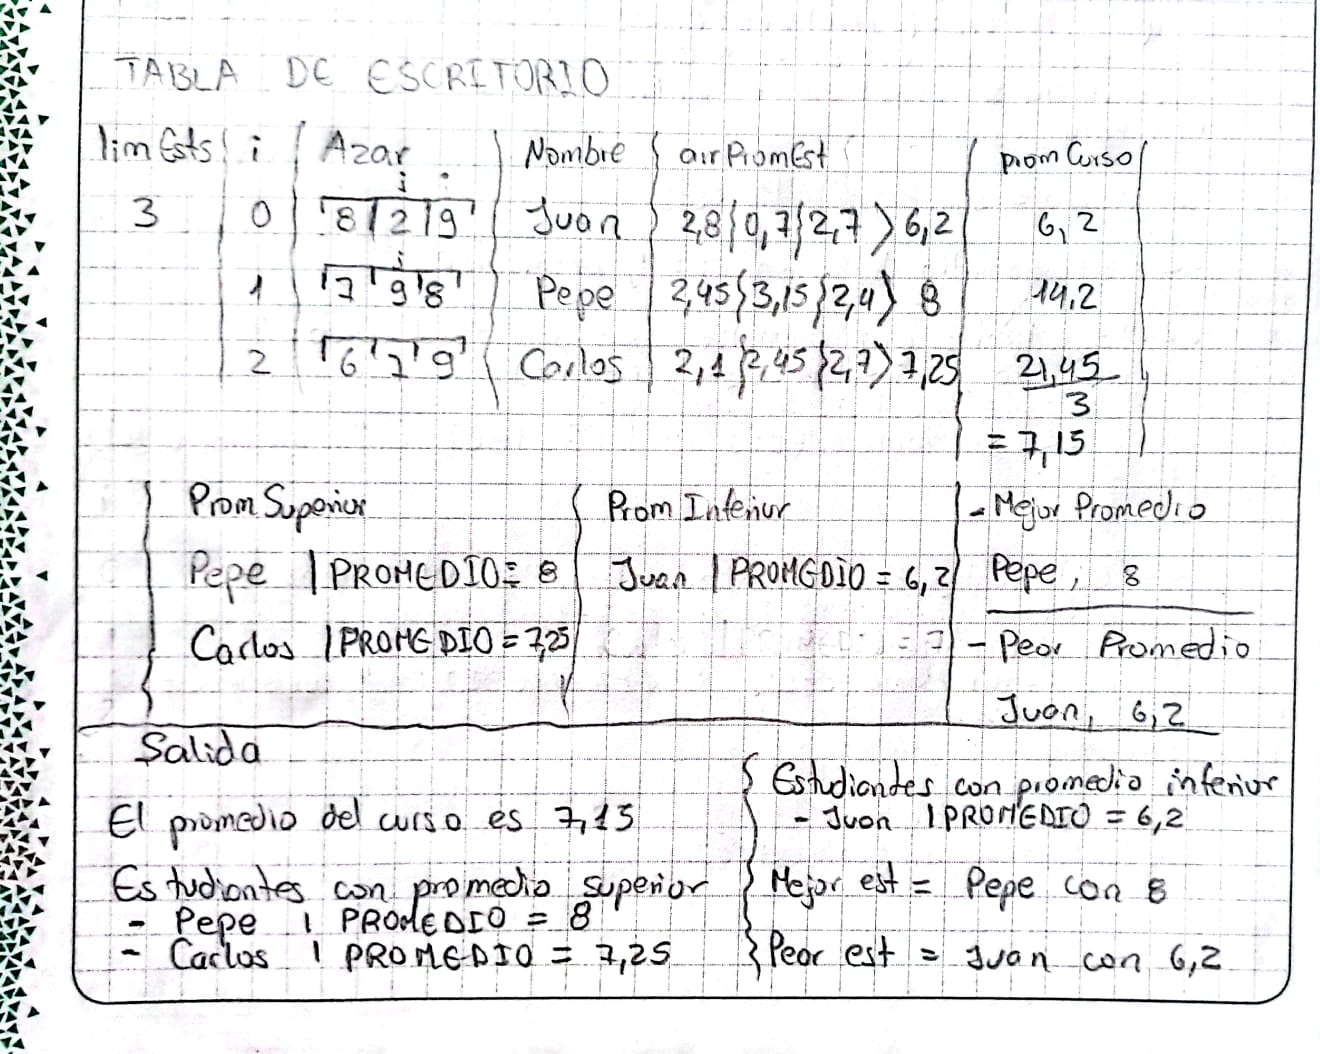 TABLA DE ESCRITORIO
limEsts i Azar Nombre arrPromEst promCurso
j
3 0 8 2 9 Juan 2,8 0,7 2,7 > 6,2 6,2
j
1 7 9 8 Pepe 2,45 3,15 2,4 > 8 14,2
2 6 7 9 Carlos 2,1 2,45 2,7 > 7,25 21,45
3
= 7,15
Prom Superior Prom Inferior - Mejor Promedio
Pepe | PROMEDIO = 8 Juan | PROMEDIO = 6,2 Pepe, 8
Carlos | PROMEDIO = 7,25 = 7 - Peor Promedio
Juan, 6,2
Salida
El promedio del curso es 7,15
Estudiantes con promedio superior
- Pepe | PROMEDIO = 8
- Carlos | PROMEDIO = 7,25
Estudiantes con promedio inferior
- Juan | PROMEDIO = 6,2
Mejor est = Pepe con 8
Peor est = Juan con 6,2